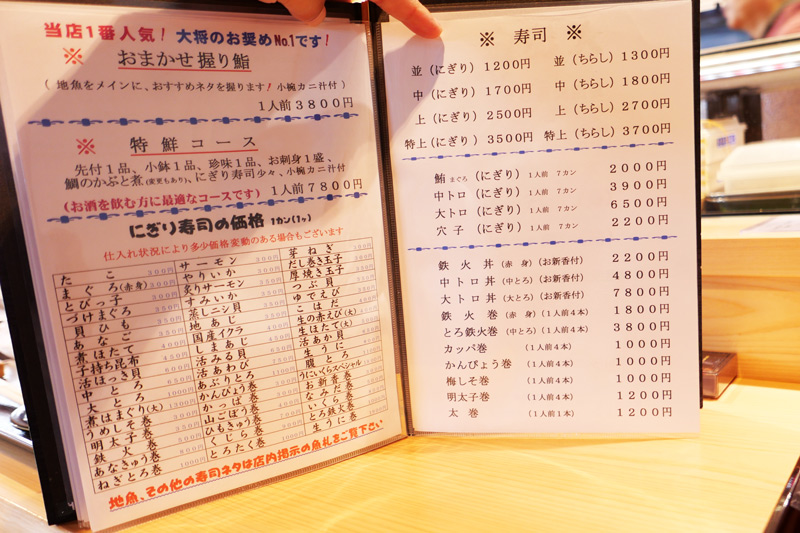 当店1番人気！ 大将のお奨めNo.1です！
※ おまかせ握り鮨
( 地魚をメインに、おすすめネタを握ります！小椀カニ汁付 )
1人前3800円
※ 特鮮コース
先付1品、小鉢1品、珍味1品、お刺身1盛、
鯛のかぶと煮(変更もあり)、にぎり寿司少々、小椀カニ汁付
(お酒を飲む方に最適なコースです) 1人前7800円
にぎり寿司の価格 1カン(1ヶ)
仕入れ状況により多少価格変動のある場合もございます
たこ
まぐろ(赤身)
とびっ子
づけまぐろ
貝ひも
あなご
煮ほたて
子持ち昆布
活ほっき貝
中とろ
大とろ
煮はまぐり(大)
うめしそ巻
明太子巻
鉄火巻
あなきゅう巻
ねぎとろ巻
サーモン
やりいか
炙りサーモン
すみいか
蒸しニシ貝
地あじ
国産イクラ
しまあじ
活みる貝
活あわび
あぶりとろ
かんぴょう巻
かっぱ巻
山ごぼう巻
ひもきゅう巻
くじら
とろたく巻
芽ねぎ
だし巻き玉子
厚焼き玉子
つぶ貝
ゆでえび
こはだ
生の赤えび(大)
生ほたて(大)
活あか貝
生うに
腹とろ
うにいくらスペシャル
お新香巻
なみだ巻
いくら巻
とろ鉄火巻
生うに巻
地魚、その他の寿司ネタは店内掲示の魚札をご覧下さい
※ 寿司 ※
並(にぎり) 1200円 並(ちらし) 1300円
中(にぎり) 1700円 中(ちらし) 1800円
上(にぎり) 2500円 上(ちらし) 2700円
特上(にぎり) 3500円 特上(ちらし) 3700円
鮪まぐろ(にぎり) 1人前 7カン 2000円
中トロ(にぎり) 1人前 7カン 3900円
大トロ(にぎり) 1人前 7カン 6500円
穴子(にぎり) 1人前 7カン 2200円
鉄火丼(赤身)(お新香付) 2200円
中トロ丼(中とろ)(お新香付) 4800円
大トロ丼(大とろ)(お新香付) 7800円
鉄火巻(赤身)(1人前4本) 1800円
とろ鉄火巻(中とろ)(1人前4本) 3800円
カッパ巻(1人前4本) 1000円
かんぴょう巻(1人前4本) 1000円
梅しそ巻(1人前4本) 1000円
明太子巻(1人前4本) 1200円
太巻(1人前1本) 1200円